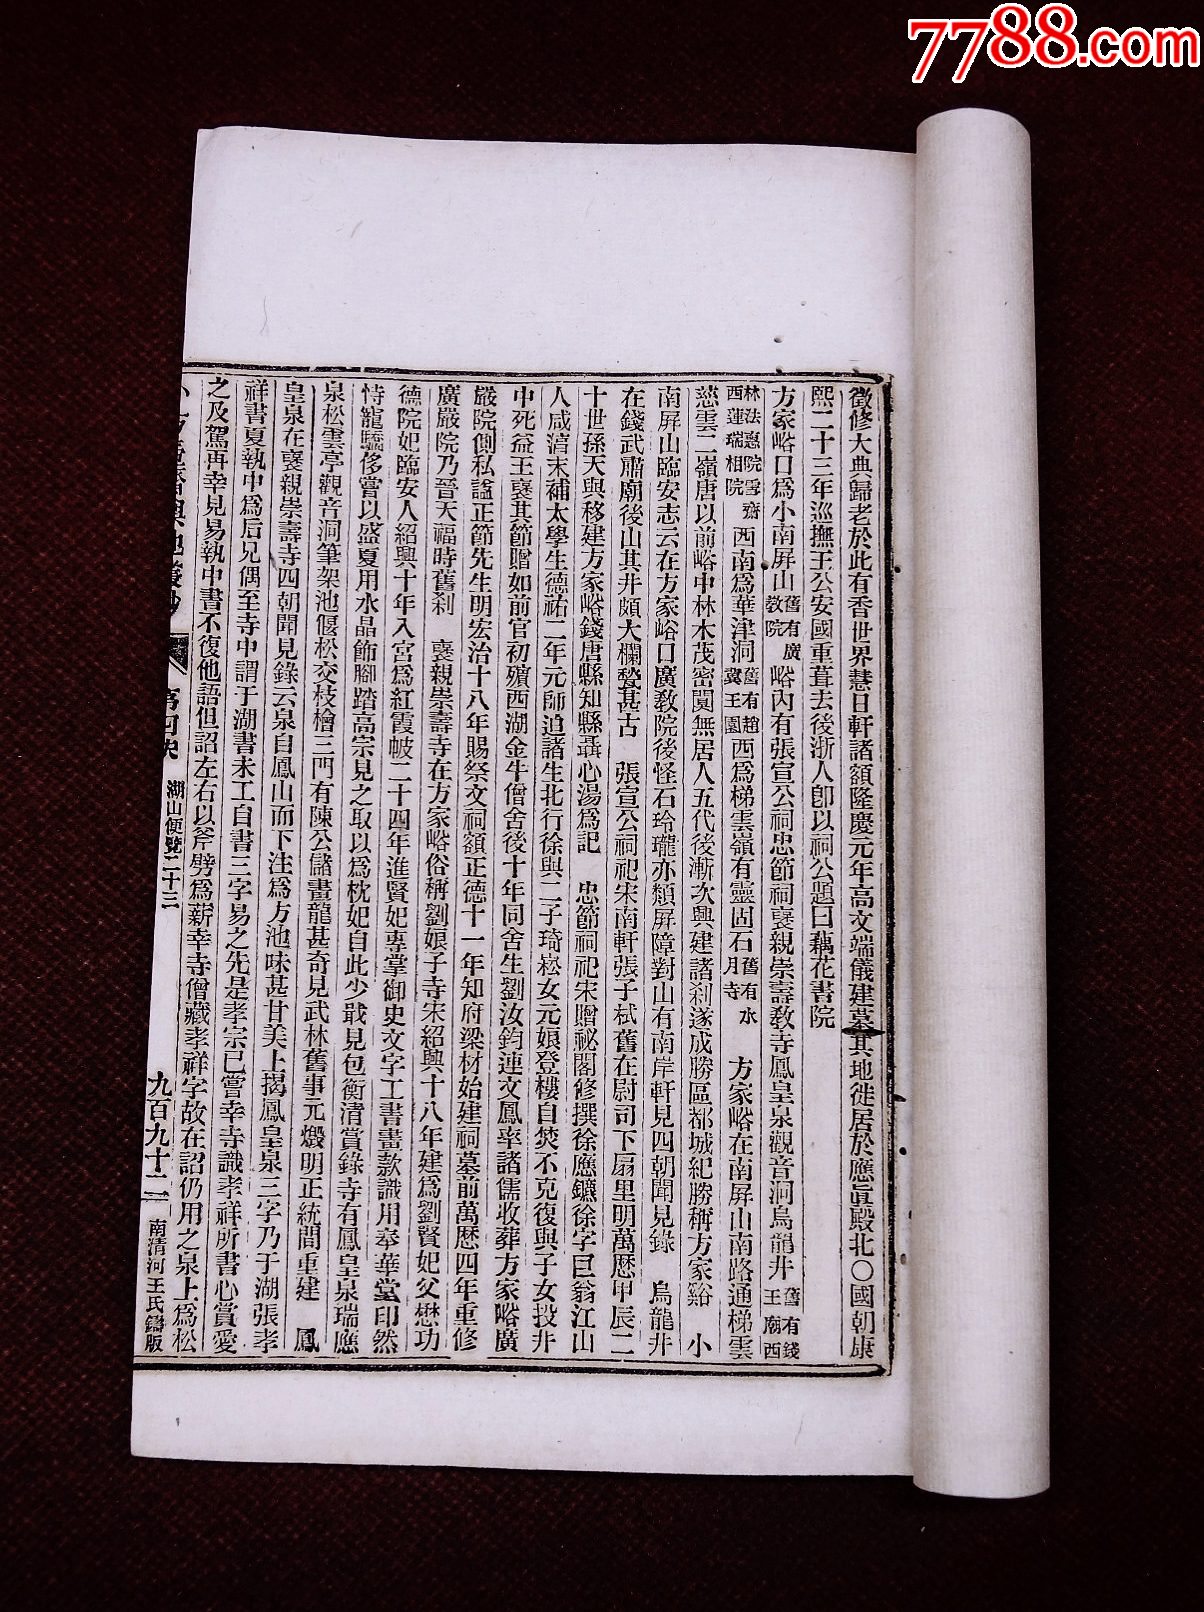 7788.com
徵修大典歸老於此有香世界慧日軒諸額隆慶元年高文端儀建墓其地徙居於應眞殿北○國朝康
熙二十三年巡撫王公安國重葺去後浙人卽以祠公題曰藕花書院
方家峪口爲小南屏山舊有廣教院峪內有張宣公祠忠節祠襃親崇壽教寺鳳皇泉觀音洞烏龍井舊有錢王廟西
林法惠院雪齋西蓮瑞相院西南爲華津洞舊有趙冀王園西爲梯雲嶺有靈固石舊有水月寺　方家峪在南屏山南路通梯雲
慈雲二嶺唐以前峪中林木茂密闃無居人五代後漸次興建諸刹遂成勝區都城紀勝稱方家谿　小
南屏山臨安志云在方家峪口廣敎院後怪石玲瓏亦類屏障對山有南岸軒見四朝聞見錄　烏龍井
在錢武肅廟後山其井頗大欄甃甚古　張宣公祠祀宋南軒張子栻舊在尉司下扇里明萬歷甲辰二
十世孫天與移建方家峪錢唐縣知縣聶心湯爲記　忠節祠祀宋贈祕閣修撰徐應鑣徐字巨翁江山
人咸淸末補太學生德祐二年元師迫諸生北行徐與二子琦崧女元娘登樓自焚不克復與子女投井
中死益王襃其節贈如前官初殯西湖金牛僧舍後十年同舍生劉汝鈞連文鳳率諸儒收葬方家峪廣
嚴院側私諡正節先生明宏治十八年賜祭文祠額正德十一年知府梁材始建祠墓前萬歷四年重修
廣嚴院乃晉天福時舊刹　襃親崇壽寺在方家峪俗稱劉娘子寺宋紹興十八年建爲劉賢妃父懋功
德院妃臨安人紹興十年入宮爲紅霞帔二十四年進賢妃專掌御史文字工書畫款識用奉華堂印然
恃寵驕侈嘗以盛夏用水晶飾腳踏高宗見之取以爲枕妃自此少戢見包衡清賞錄寺有鳳皇泉瑞應
泉松雲亭觀音洞筆架池偃松交枝檜三門有陳公儲畫龍甚奇見武林舊事元燬明正統間重建　鳳
皇泉在襃親崇壽寺四朝聞見錄云泉自鳳山而下注爲方池味甚甘美上揭鳳皇泉三字乃于湖張孝
祥書夏執中爲后兄偶至寺中謂于湖書未工自書三字易之先是孝宗已嘗幸寺識孝祥所書心賞愛
之及駕再幸見易執中書不復他語但詔左右以斧劈爲薪幸寺僧藏孝祥字故在詔仍用之泉上爲松
小方壺齋輿地叢鈔　第四帙　湖山便覽二十三　九百九十二　南清河王氏鑄版